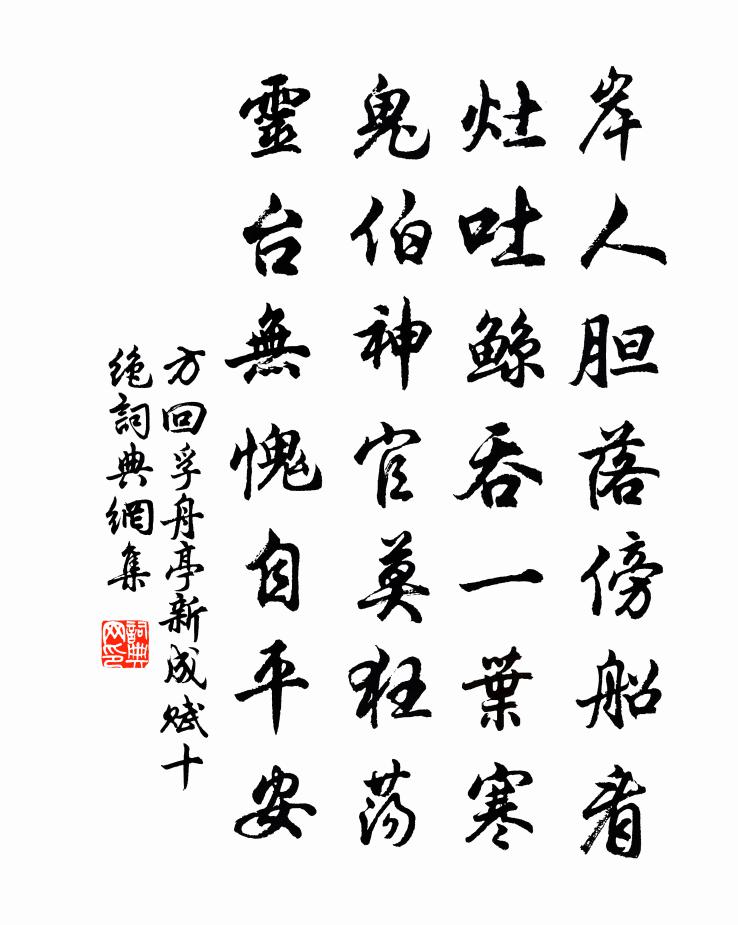 岸人胆落傍船看
灶吐鲸吞一葉寒
鬼伯神官莫狂荡
靈台無愧自平安
方回孚舟亭新成赋十
绝詞典網集
詞典网印